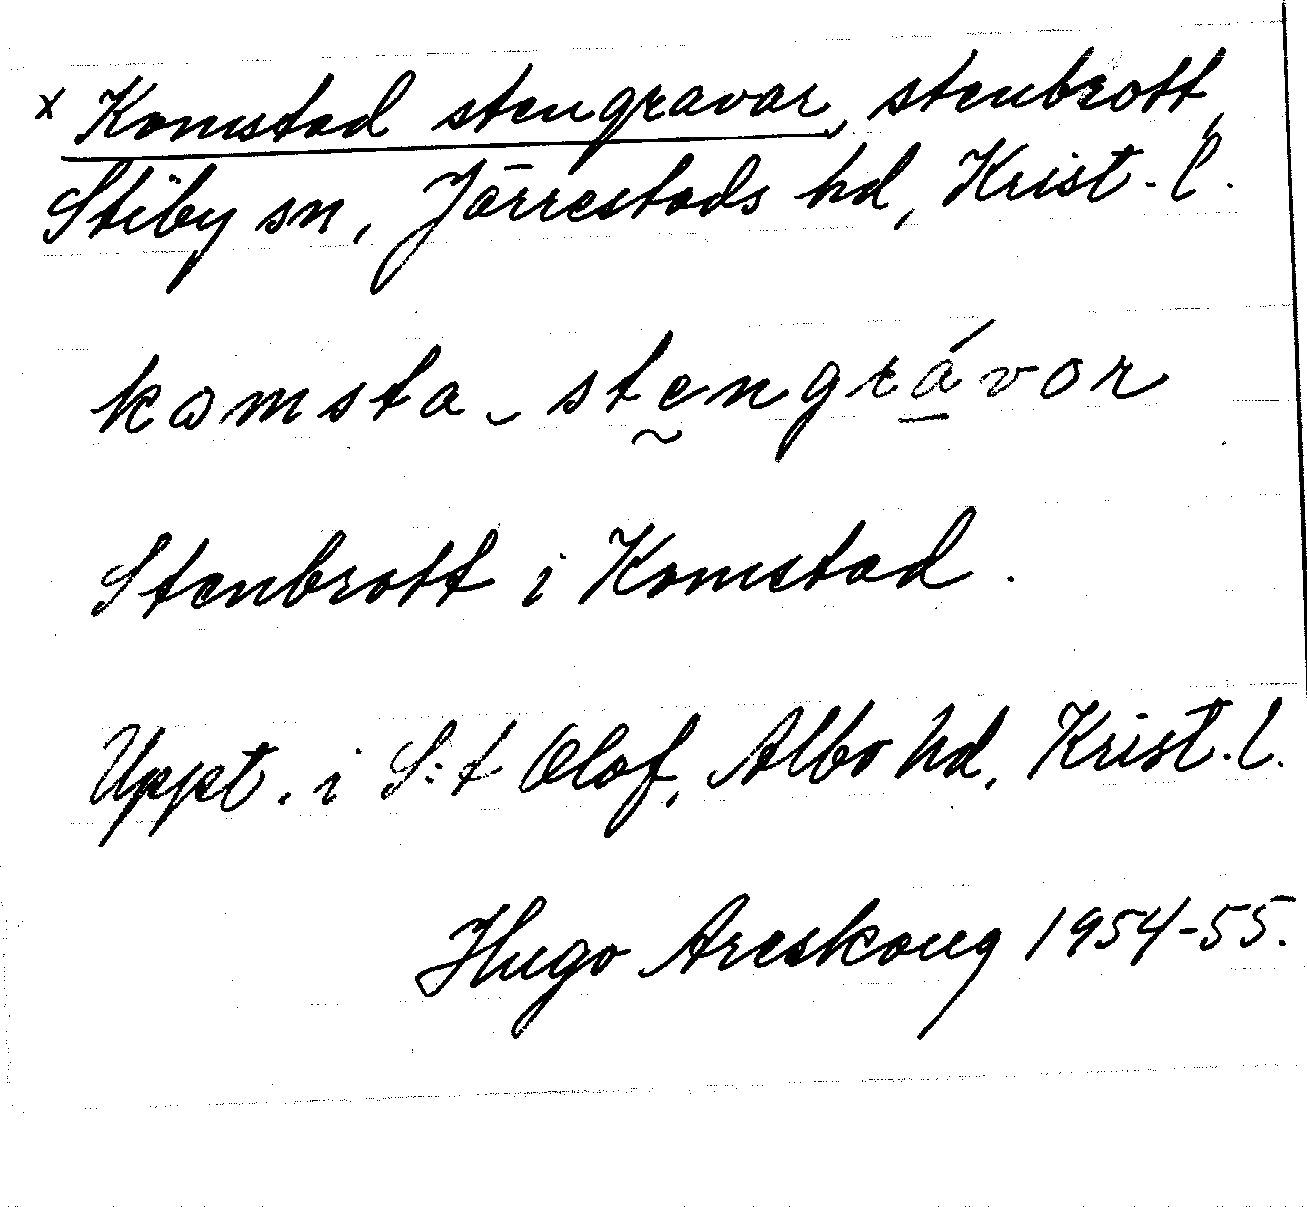 x Komstad stengravar, stenbrott,
Stiby sn, Järrestads hd, Krist. l.
kɷmsta stengrávor
Stenbrott i Komstad.
Uppt. i S:t Olof, Albo hd, Krist. l.
Hugo Areskoug 1954-55.